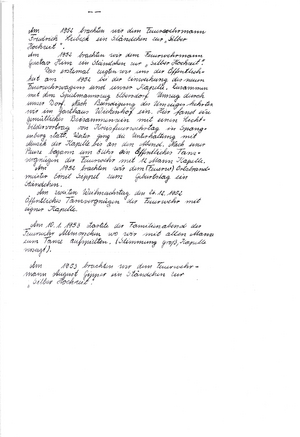 Am 1952 brachten wir dem Feuerwehrmann
Friedrich ein Ständchen zur „Silber
Hochzeit".
Am 1952 brachten wir dem Feuerwehrmann
Gustav ein Ständchen zur „Silber Hochzeit".
Das erstemal zeigten wir uns der Öffentlich-
keit am 1952 bei der Einweihung des neuen
Feuerwehrwagens und unser Kapelle. Zusammen
mit dem Spielmannszug Umzug durch
unser Dorf. Nach Beendigung des Umzuges kehrten
wir im Gasthaus ein. Hier fand ein
gemütliches Versammensein mit einem Licht-
bildervortrag von
statt. Unter zeug die Unterhaltung mit
Musik die Kapelle bei an den Abend. Nach einer
Pause begann um 8 Uhr ein Öffentliches Tanz-
vergnügen der Feuerwehr mit 12 Mann Kapelle.
Am 1952 brachten wir dem (Feuerw) Ortsbrand-
meister Ernst zum Geburtstag ein
Ständchen.
Am zweiten Weihnachtstag den 26.12.1952
Öffentliches Tanzvergnügen der Feuerwehr mit
eigner Kapelle.
Am 10.1.1953 startete der Familienabend der
Feuerwehr wo wir mit allen Mann
zum Tanze aufspielten. (Stimmung groß, Kapelle
Am 1953 brachten wir dem Feuerwehr-
mann August ein Ständchen zur
„Silber Hochzeit".